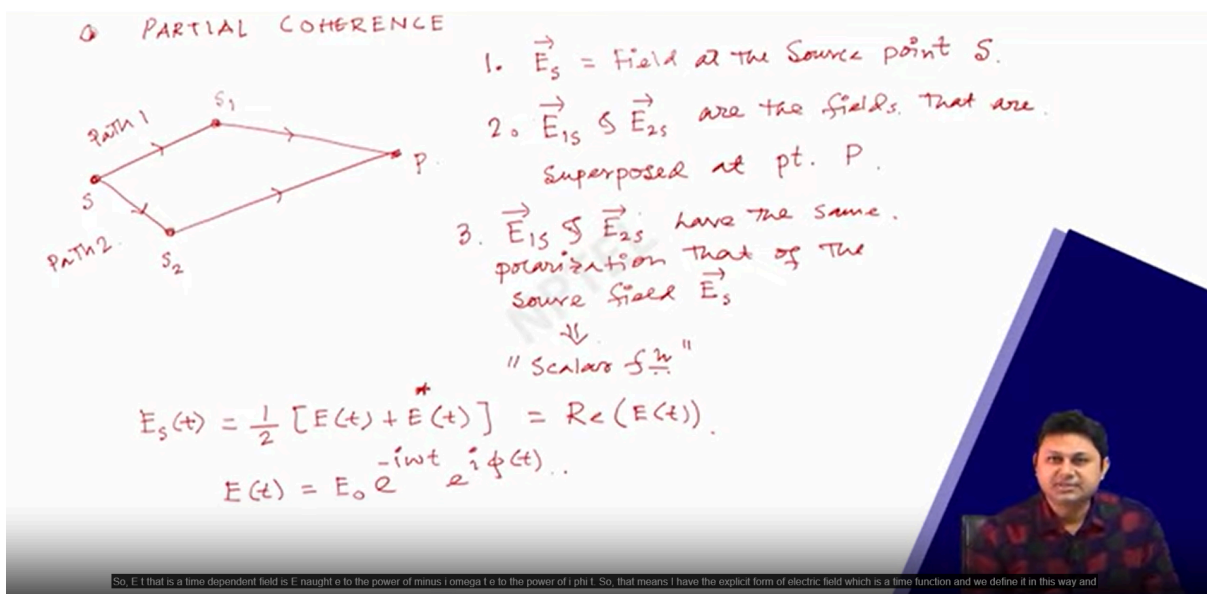 PARTIAL COHERENCE
1. E⃗s = Field at the Source point S.
2. E⃗1s & E⃗2s are the fields. that are.
superposed at pt. P.
3. E⃗1s & E⃗2s have the same.
polarization that of the
sourse field E⃗s
⇓
"Scalar fn"
S1
Path 1
P.
S
PATH2
S2
Es(t) = 1/2 [E(t) + E*(t)] = Re(E(t)).
E(t) = E₀ e^{-iωt} e^{iφ(t)}..
NPTEL
So, E t that is a time dependent field is E naught e to the power of minus i omega t e to the power of i phi t. So, that means I have the explicit form of electric field which is a time function and we define it in this way and